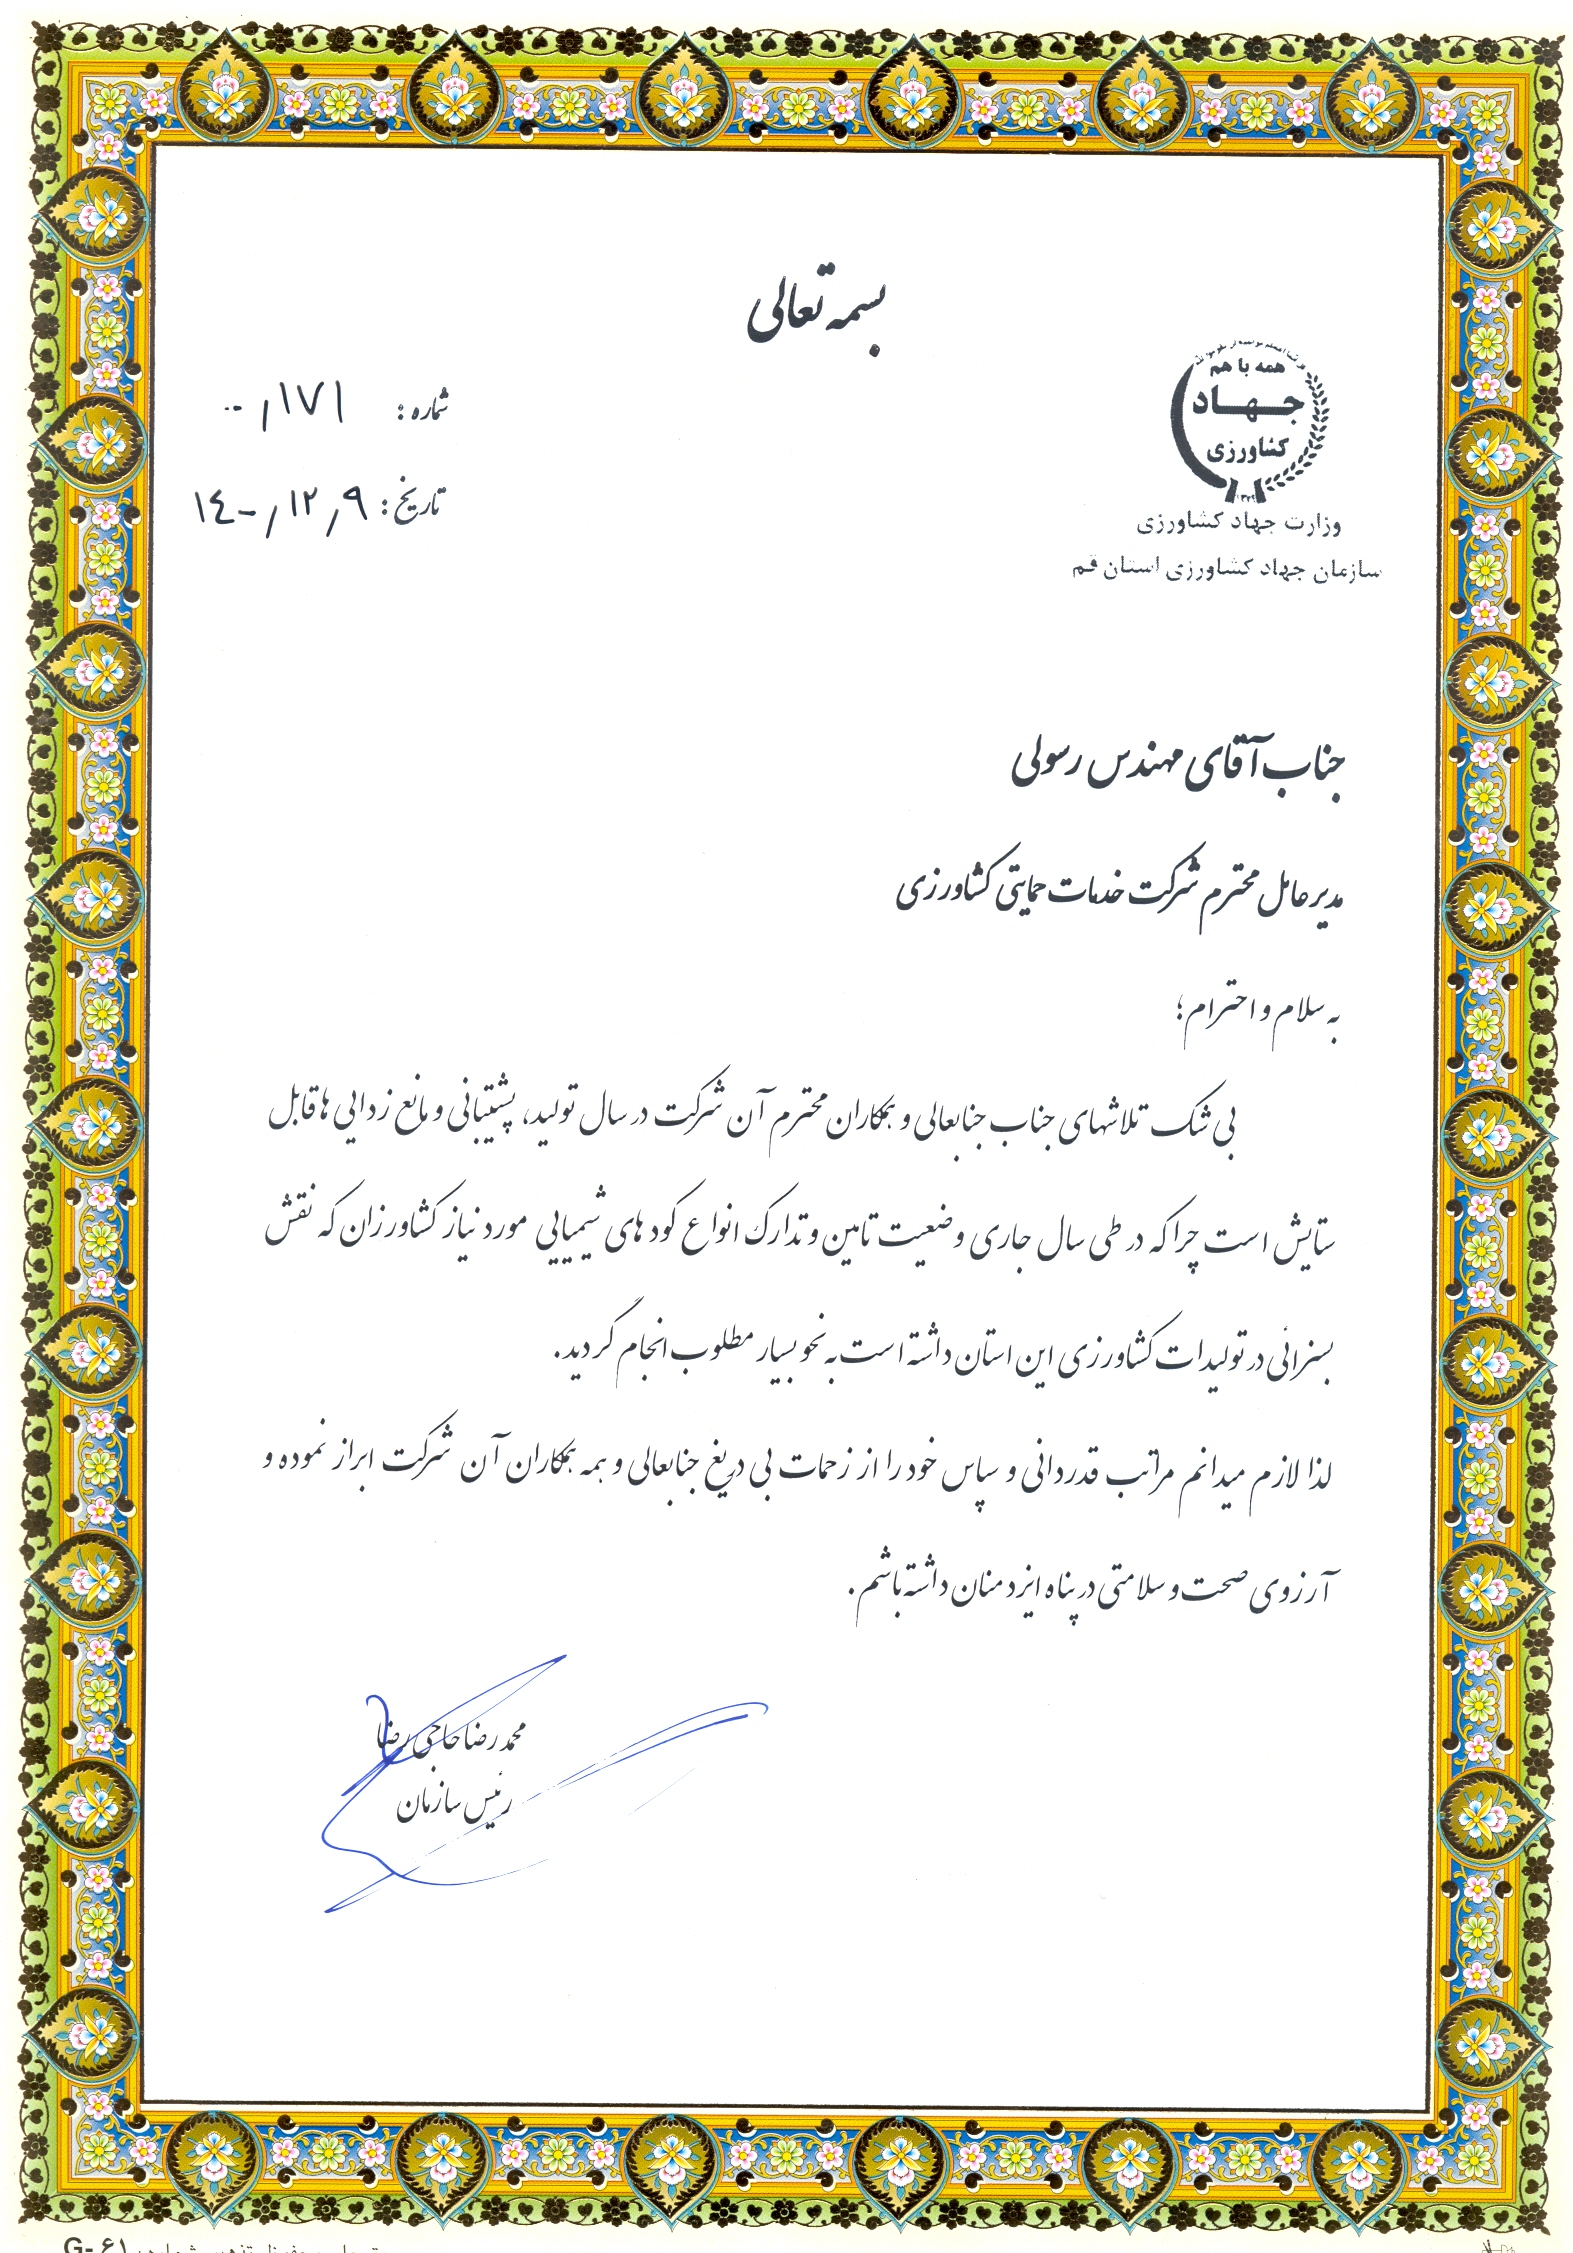 بسمه تعالی
همه با هم
جهاد
کشاورزی
وزارت جهاد کشاورزی
سازمان جهاد کشاورزی استان قم
شماره: ۱۷۱/۰۰
تاریخ: ۱۴۰۰/۱۲/۹
جناب آقای مهندس رسولی
مدیرعامل محترم شرکت خدمات حمایتی کشاورزی
به سلام و احترام؛
بی شک تلاشهای جناب جنابعالی و همکاران محترم آن شرکت در سال تولید، پشتیبانی و مانع زدایی ها قابل
ستایش است چرا که در طی سال جاری وضعیت تامین و تدارک انواع کود های شیمیایی مورد نیاز کشاورزان که نقش
بسزائی در تولیدات کشاورزی این استان داشته است به نحو بسیار مطلوب انجام گردید.
لذا لازم میدانم مراتب قدردانی و سپاس خود را از زحمات بی دریغ جنابعالی و همه همکاران آن شرکت ابراز نموده و
آرزوی صحت و سلامتی در پناه ایزد منان داشته باشم.
محمدرضا حاجی رضا
رئیس سازمان
G-۶۱